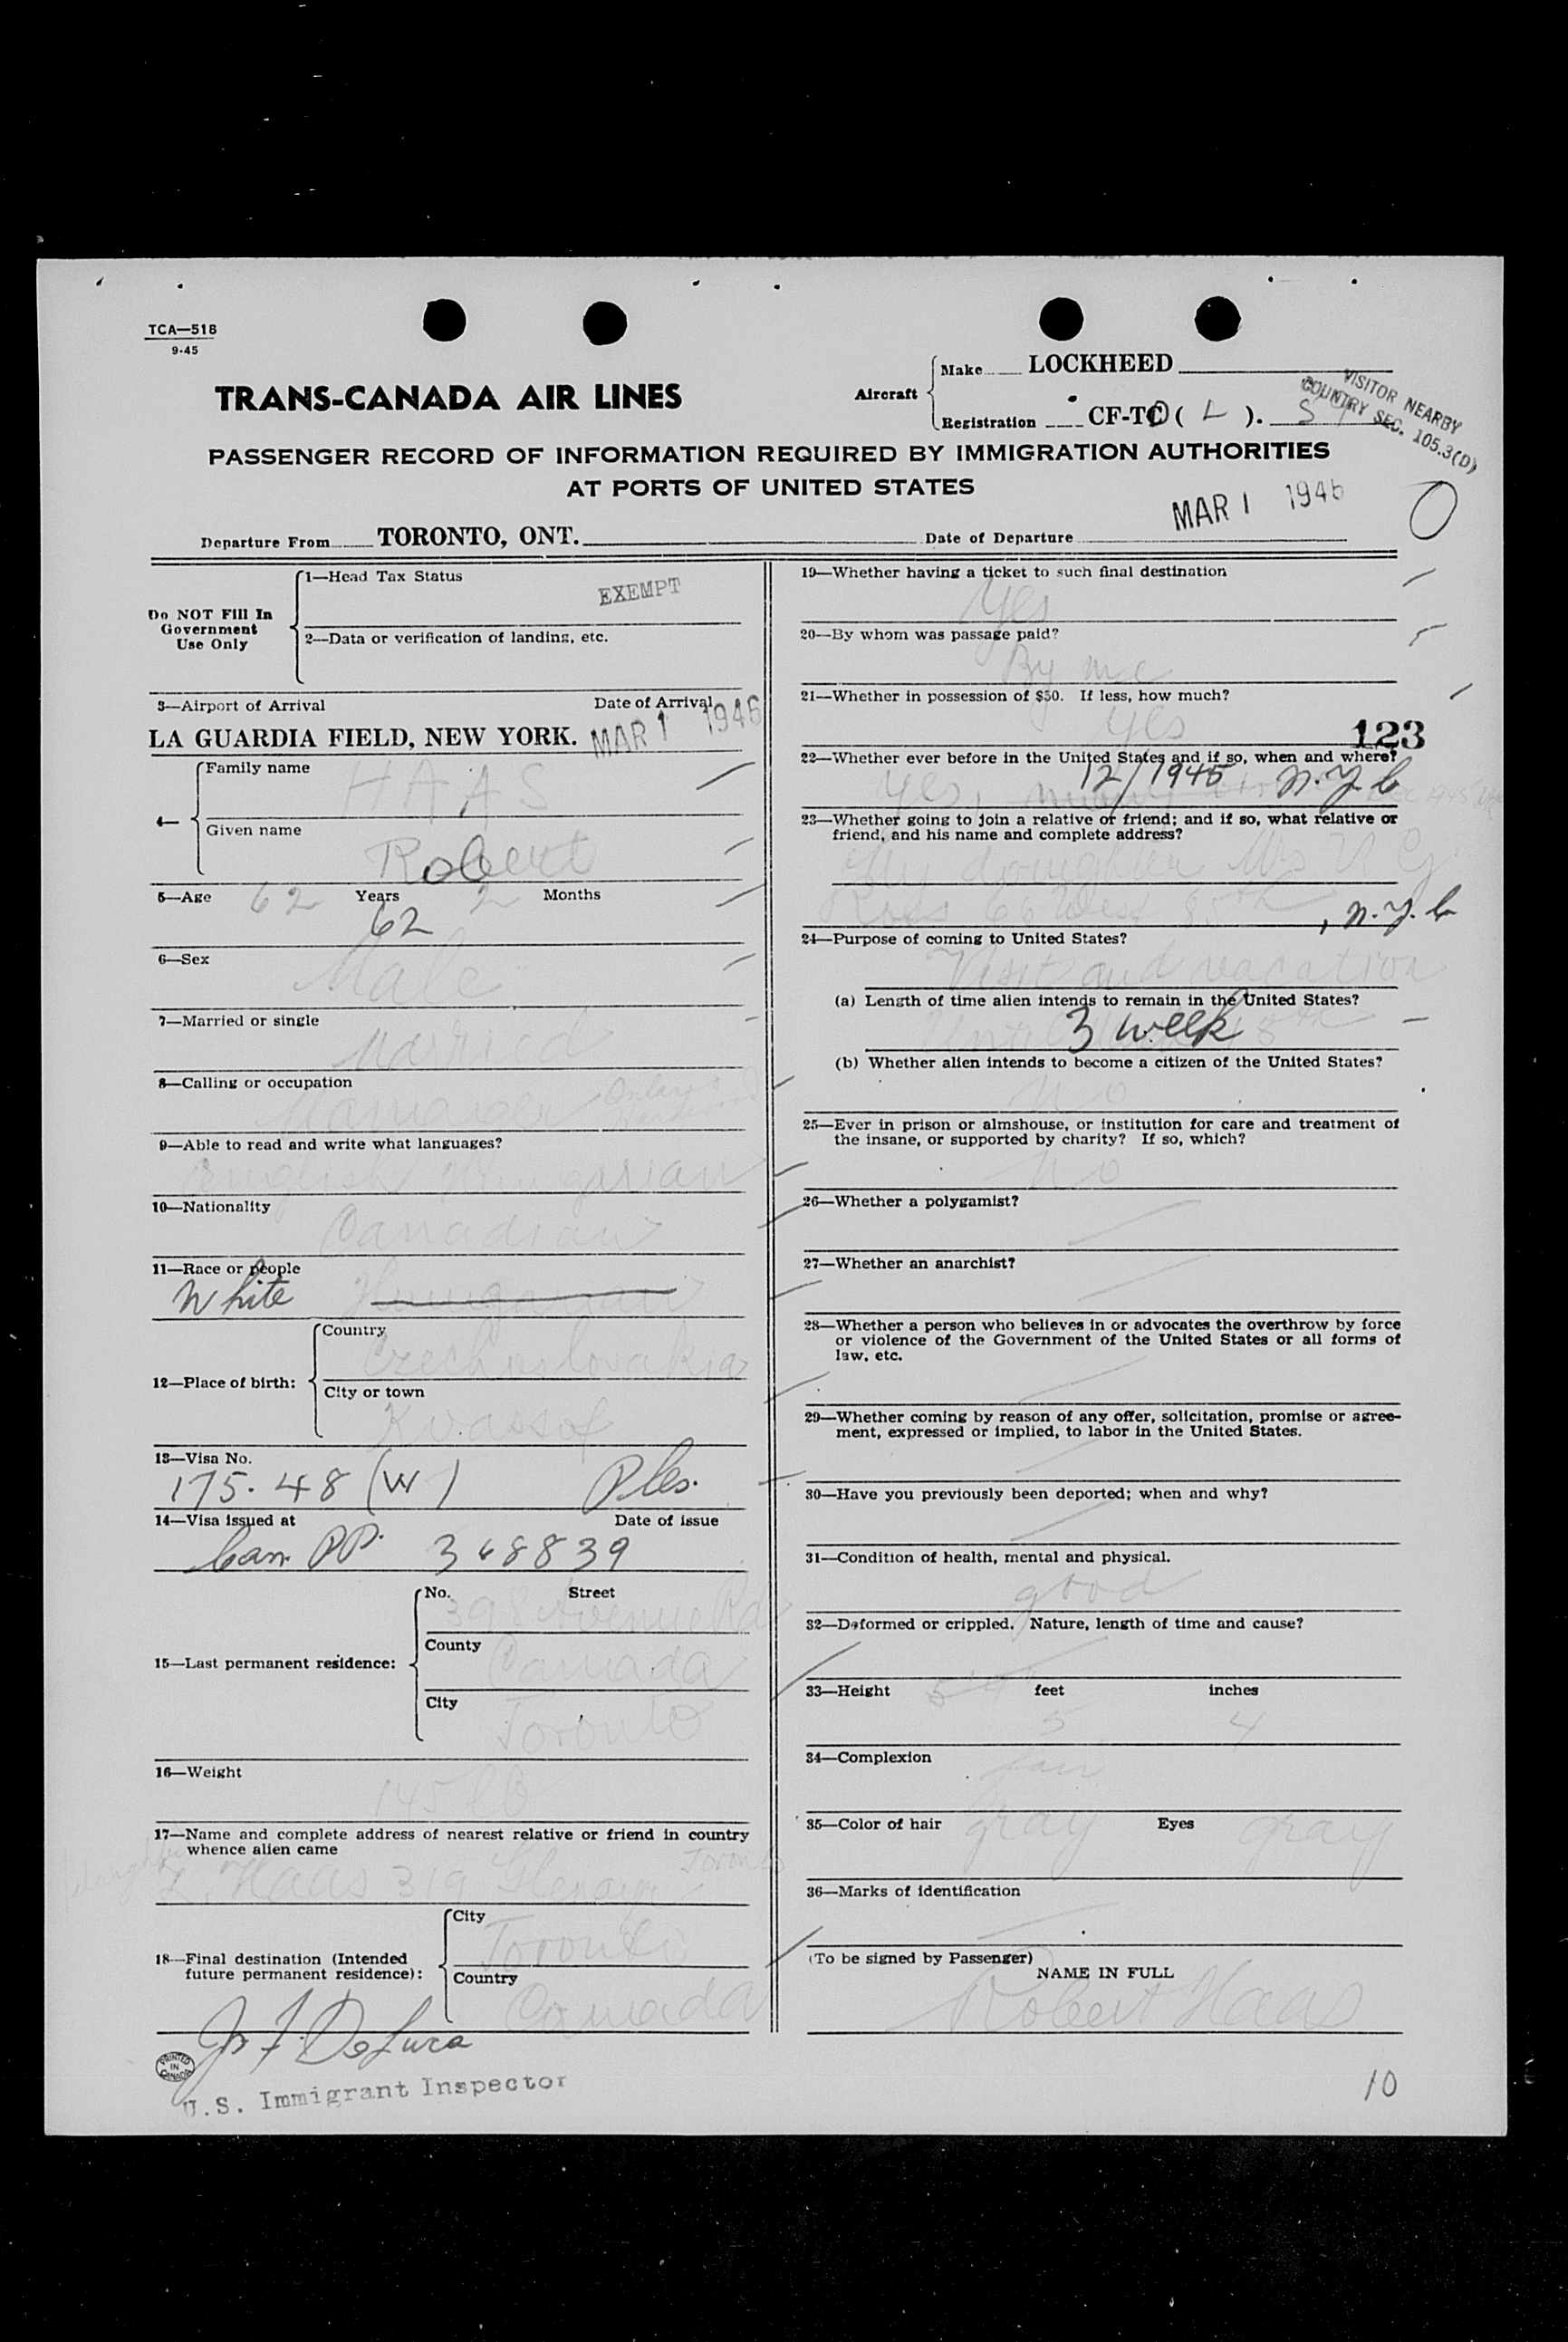 TCA—518
9-45
TRANS-CANADA AIR LINES
Aircraft
Make LOCKHEED
Registration CF-TC ( L ).
VISITOR NEARBY
COUNTRY SEC. 105.3(D)
PASSENGER RECORD OF INFORMATION REQUIRED BY IMMIGRATION AUTHORITIES
AT PORTS OF UNITED STATES
MAR 1 1946
Departure From TORONTO, ONT. Date of Departure
Do NOT Fill In
Government
Use Only
1—Head Tax Status
EXEMPT
2—Data or verification of landing, etc.
3—Airport of Arrival Date of Arrival
LA GUARDIA FIELD, NEW YORK. MAR 1 1946
4—
Family name
HAAS
Given name
Robert
5—Age 62 Years 2 Months
62
6—Sex
Male
7—Married or single
Married
8—Calling or occupation
Manager
9—Able to read and write what languages?
English Hungarian
10—Nationality
Canadian
11—Race or people
White Hungarian
12—Place of birth:
Country
Czechoslovakia
City or town
Kvassof
13—Visa No.
175.48 (W)
14—Visa issued at Date of issue
Can PP. 368839
15—Last permanent residence:
No. Street
398 Avenue Rd
County
Canada
City
Toronto
16—Weight
145 lb
17—Name and complete address of nearest relative or friend in country
whence alien came
Haas 319 Toronto
18—Final destination (Intended
future permanent residence):
City
Toronto
Country
Canada
De Luca
PRINTED
IN
CANADA
U.S. Immigrant Inspector
19—Whether having a ticket to such final destination
Yes
20—By whom was passage paid?
By me
21—Whether in possession of $50. If less, how much?
yes
123
22—Whether ever before in the United States and if so, when and where?
yes, many 12/1945 N.Y.C
23—Whether going to join a relative or friend; and if so, what relative or
friend, and his name and complete address?
My daughter Mrs N G
Ross 66 West 85th , N.Y.C
24—Purpose of coming to United States?
Visit and vacation
(a) Length of time alien intends to remain in the United States?
3 week
(b) Whether alien intends to become a citizen of the United States?
No
25—Ever in prison or almshouse, or institution for care and treatment of
the insane, or supported by charity? If so, which?
No
26—Whether a polygamist?
27—Whether an anarchist?
28—Whether a person who believes in or advocates the overthrow by force
or violence of the Government of the United States or all forms of
law, etc.
29—Whether coming by reason of any offer, solicitation, promise or agree-
ment, expressed or implied, to labor in the United States.
30—Have you previously been deported; when and why?
31—Condition of health, mental and physical.
good
32—Deformed or crippled. Nature, length of time and cause?
33—Height feet inches
5 4
34—Complexion
fair
35—Color of hair gray Eyes gray
36—Marks of identification
(To be signed by Passenger)
NAME IN FULL
Robert Haas
10